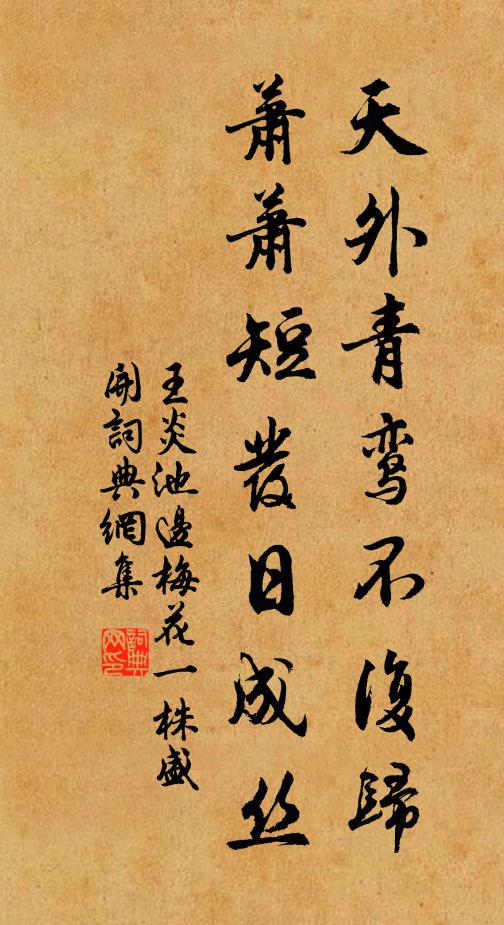 天外青鸾不復歸
蕭蕭短發日成丝
王炎池邊梅花一株盛
開詞典網集
詞典网印